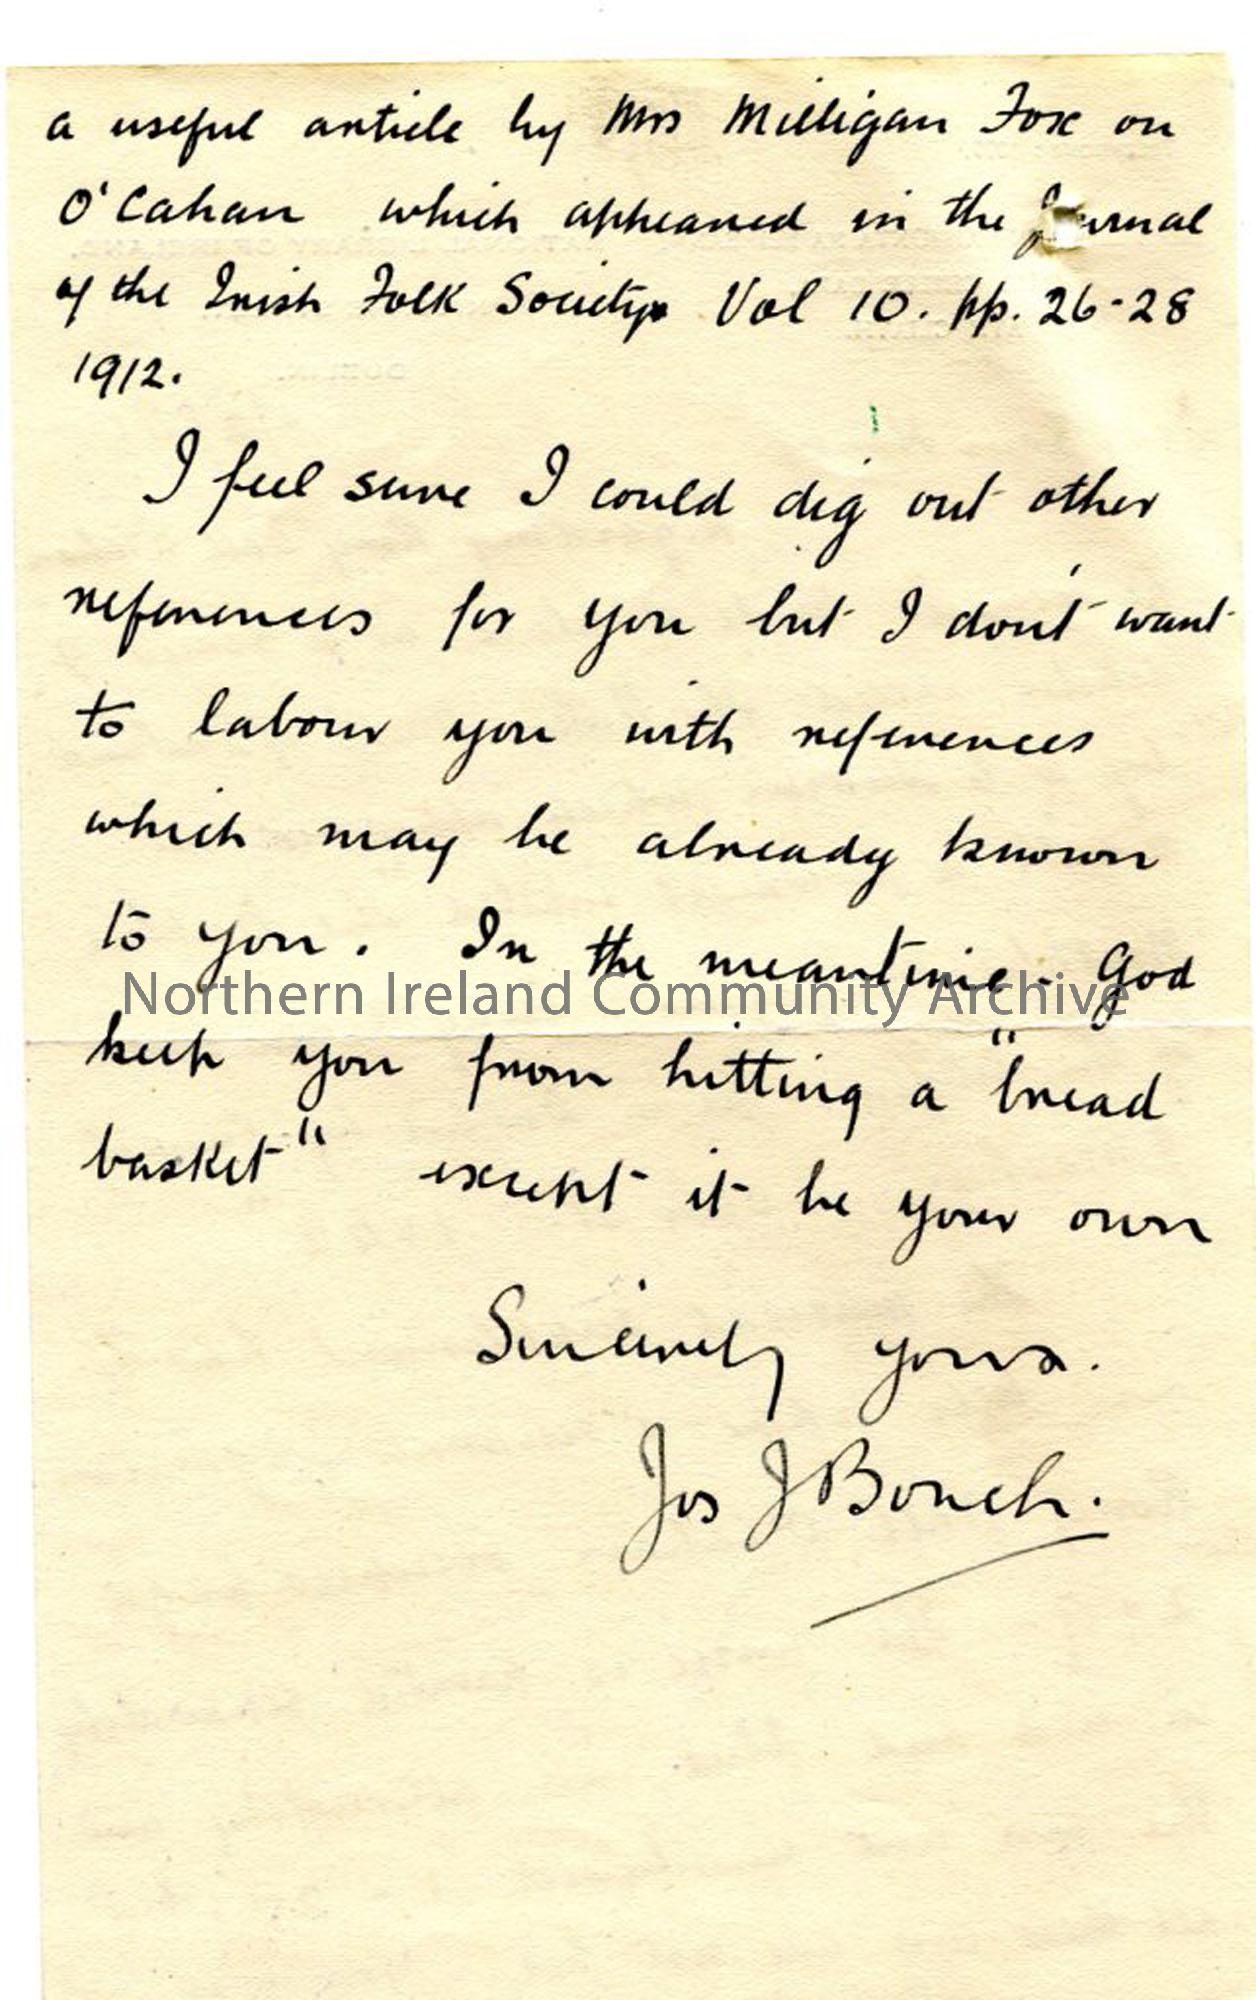 a useful article by Mrs Milligan Fox on
O'Cahan which appeared in the Journal
of the Irish Folk Society Vol 10. pp. 26-28
1912.
I feel sure I could dig out other
references for you but I don't want
to labour you with references
which may be already known
to you. In the meantime - God
Northern Ireland Community Archive
keep you from hitting a "bread
basket" except it be your own
Sincerely yours.
Jos J Bouch.